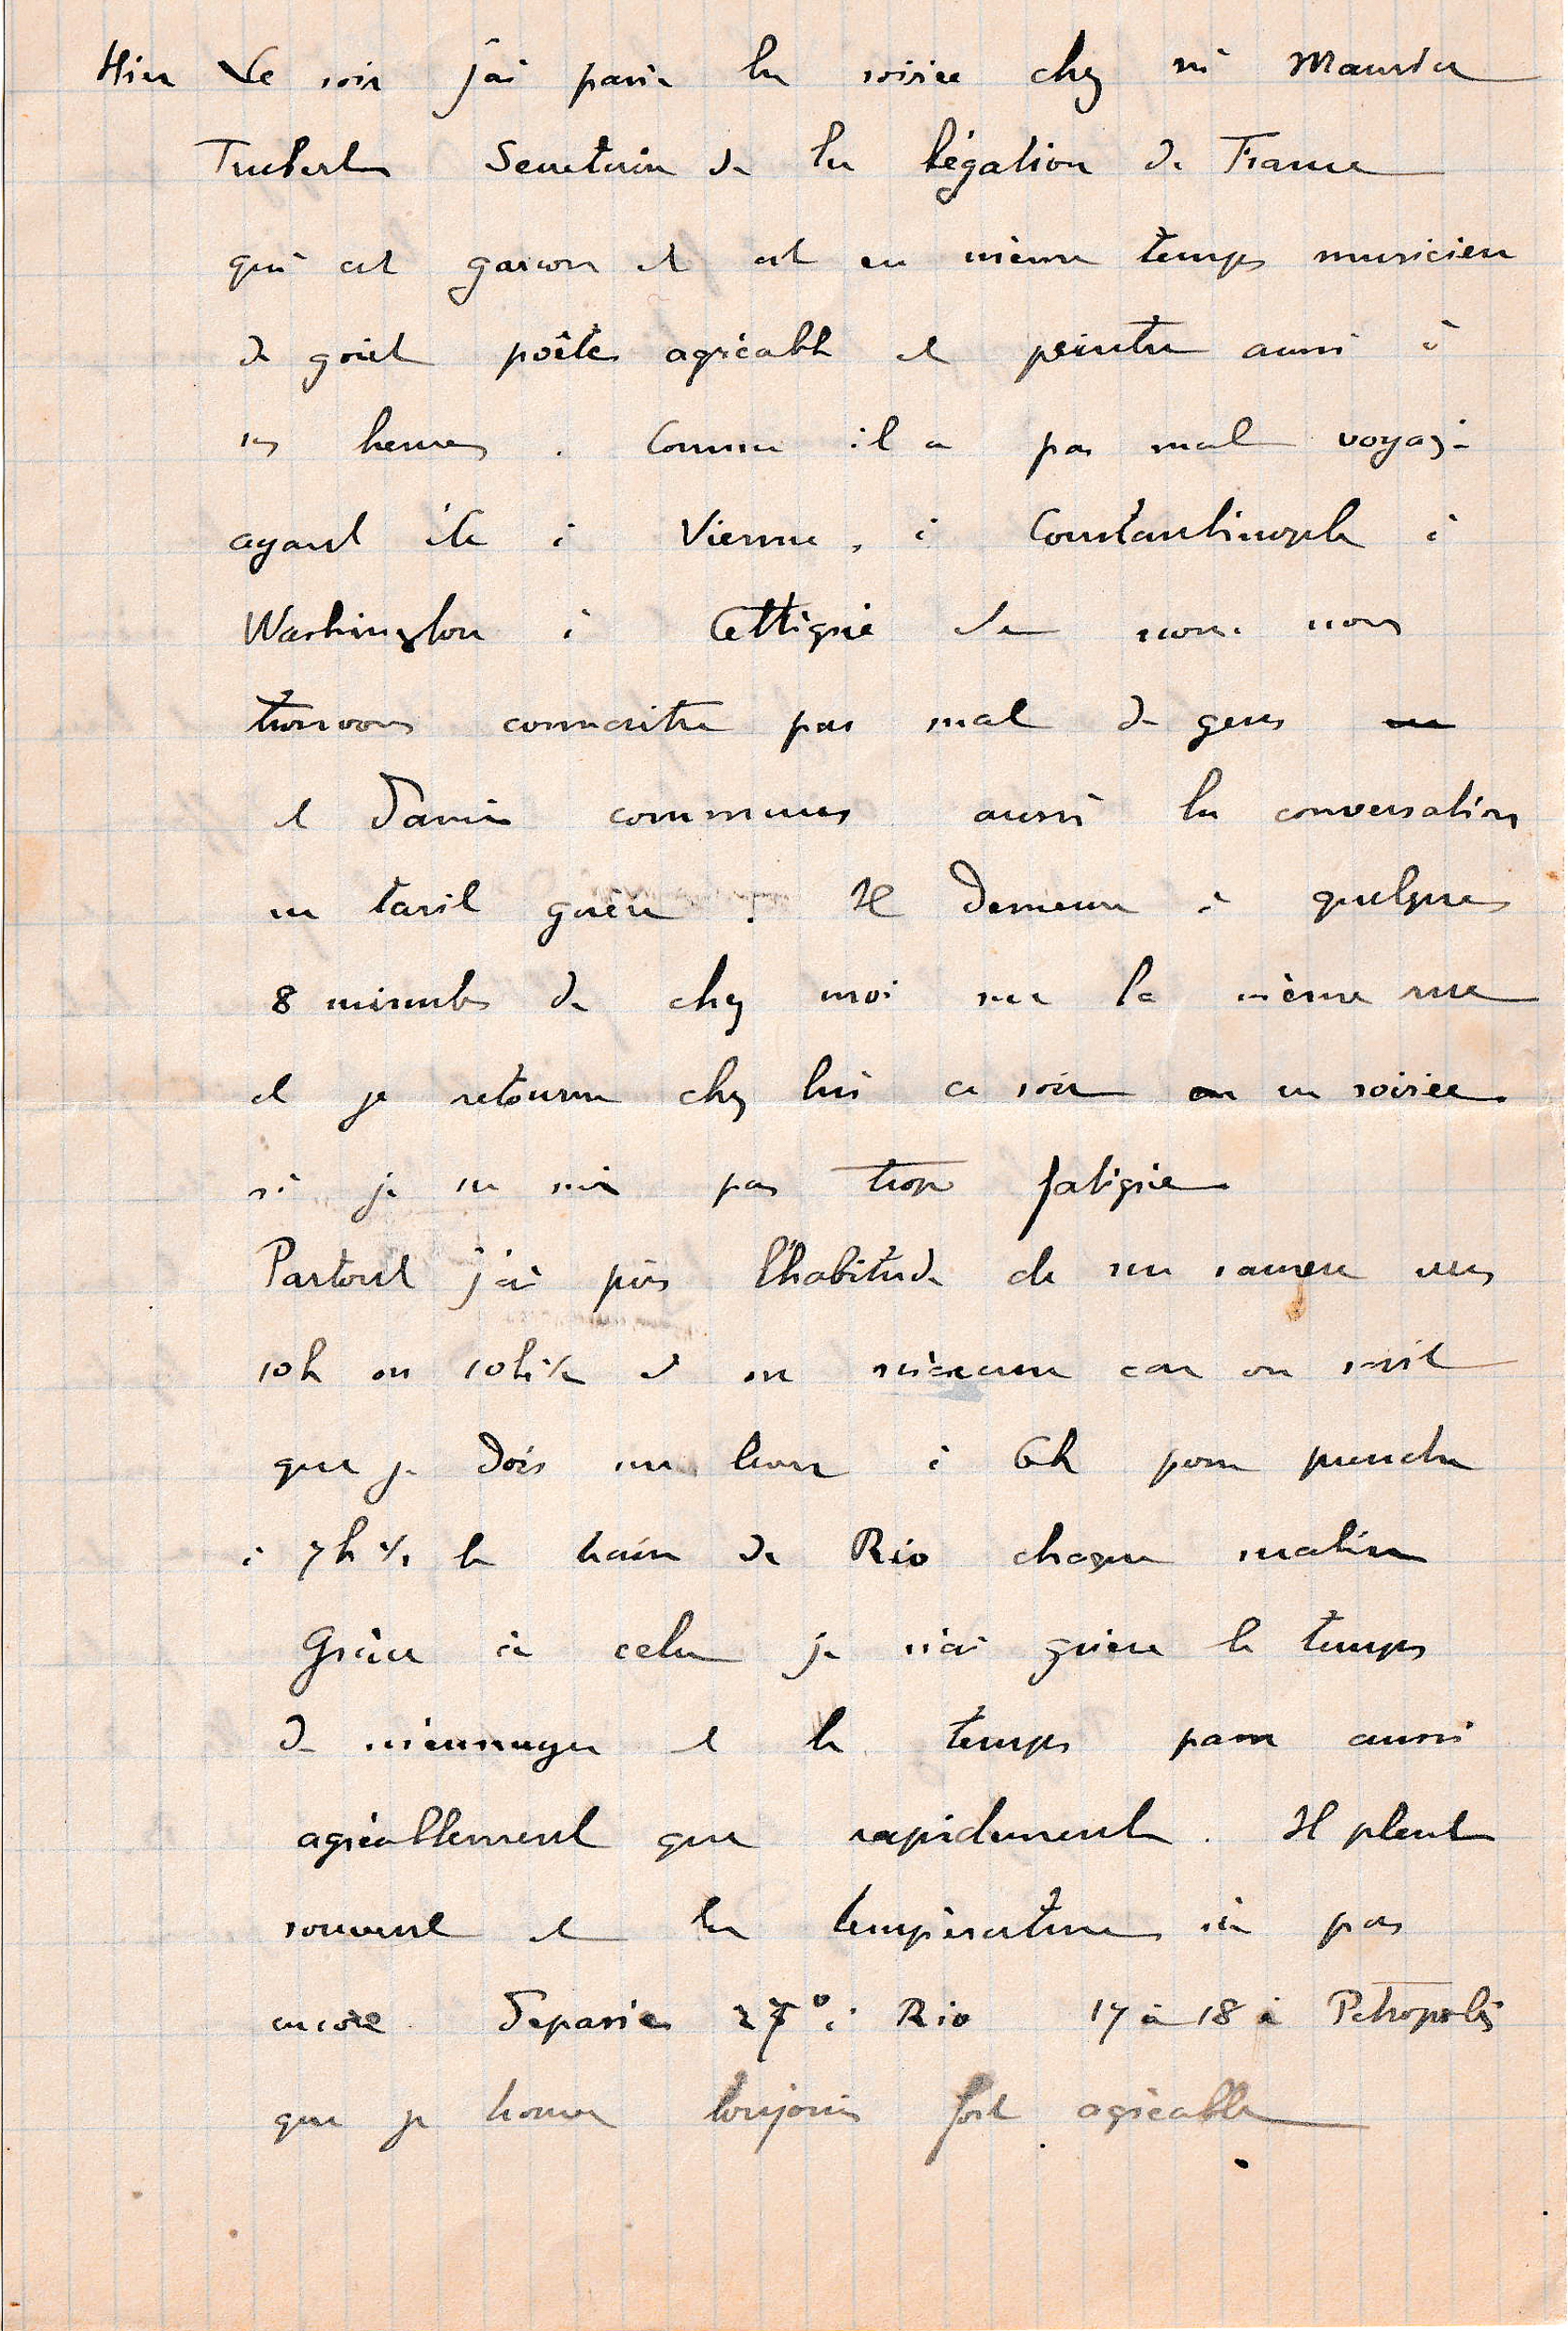 Hier Le soir j'ai passé la soirée chez Mr Maurice
Trubert Secretaire de la légation de France
qui est garçon et est en même temps musicien
de goût poête agréable et peintre aussi à
ses heures. Comme il a pas mal voyagé
ayant été à Vienne, à Constantinople à
Washington à Cettigné nous nous
trouvons connaitre pas mal de gens
et d'amis communs aussi la conversation
ne tarit guère. Il demeure à quelques
8 minutes de chez moi sur la même rue
et je retourne chez lui ce soir en soirée
si je ne suis pas trop fatigué
Partout j'ai pris l'habitude de me sauver vers
10h ou 10h½ et on m'excuse car on sait
que je dois me lever à 6h pour prendre
à 7h½ le train de Rio chaque matin
Grâce à cela je n'ai guère le temps
de m'ennuyer et le temps passe aussi
agréablement que rapidement. Il pleut
souvent et la température n'a pas
encore dépassé 27° à Rio 17 à 18 à Petropolis
que je trouve toujours fort agréable